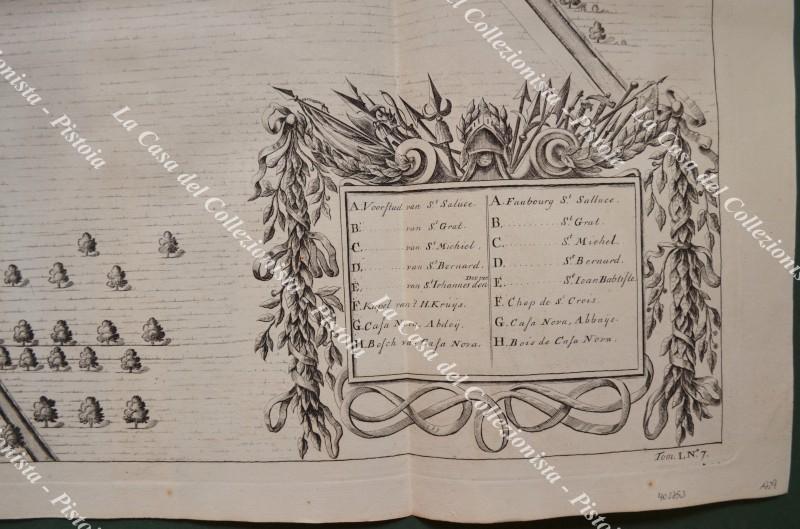 A. Voorstad van S.t Saluce.
B. .......... van S.t Grat.
C. .......... van S.t Michiel.
D. .......... van S.t Bernard.
Dooper
E. .......... van S.t Iohannes den
F. Kapel van 't H. Kruijs.
G. Casa Nova, Abdoij.
H. Bosch van Casa Nova.
A. Faubourg S.t Salluce.
B. ............ S.t Grat.
C. ............ S.t Michel.
D. ............ S.t Bernard.
E. ............ S.t Ioan Babtiste.
F. Chap de S.t Crois.
G. Casa Nova, Abbaije.
H. Bois de Casa Nova.
Tom. I. N.o 7.
La Casa del Collezionista - Pistoia
La Casa del Collezionista - Pistoia
La Casa del Collezionista - Pistoia
La Casa del Collezionista - Pistoia